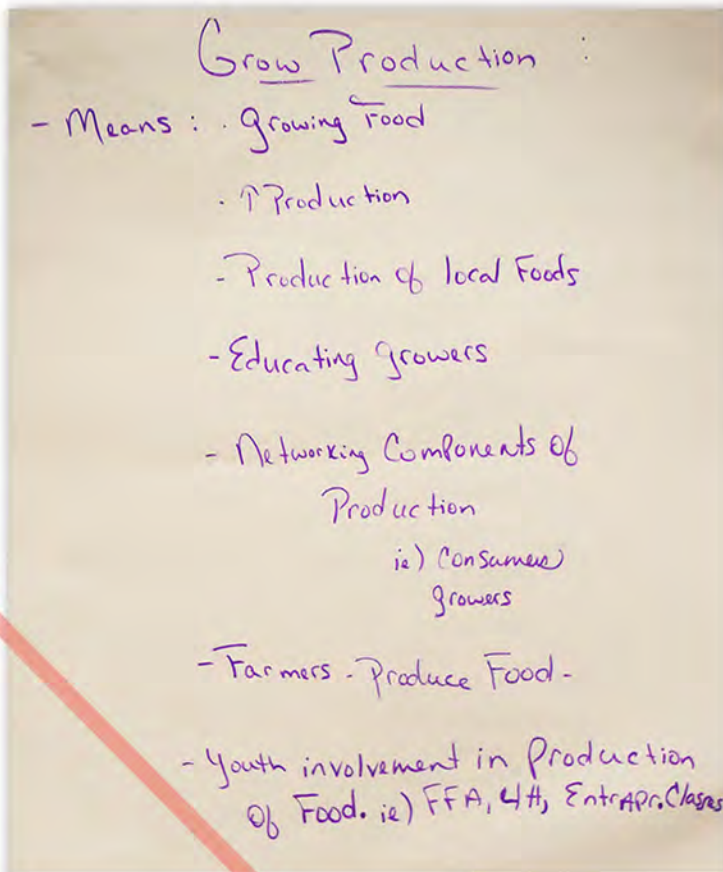 Grow Production :
- Means : . Growing Food
. ↑ Production
- Production of local Foods
- Educating growers
- Networking Components of
Production
ie) Consumers
growers
- Farmers - Produce Food -
- Youth involvement in Production
Of Food. ie) FFA, 4H, EntrApr. Classes